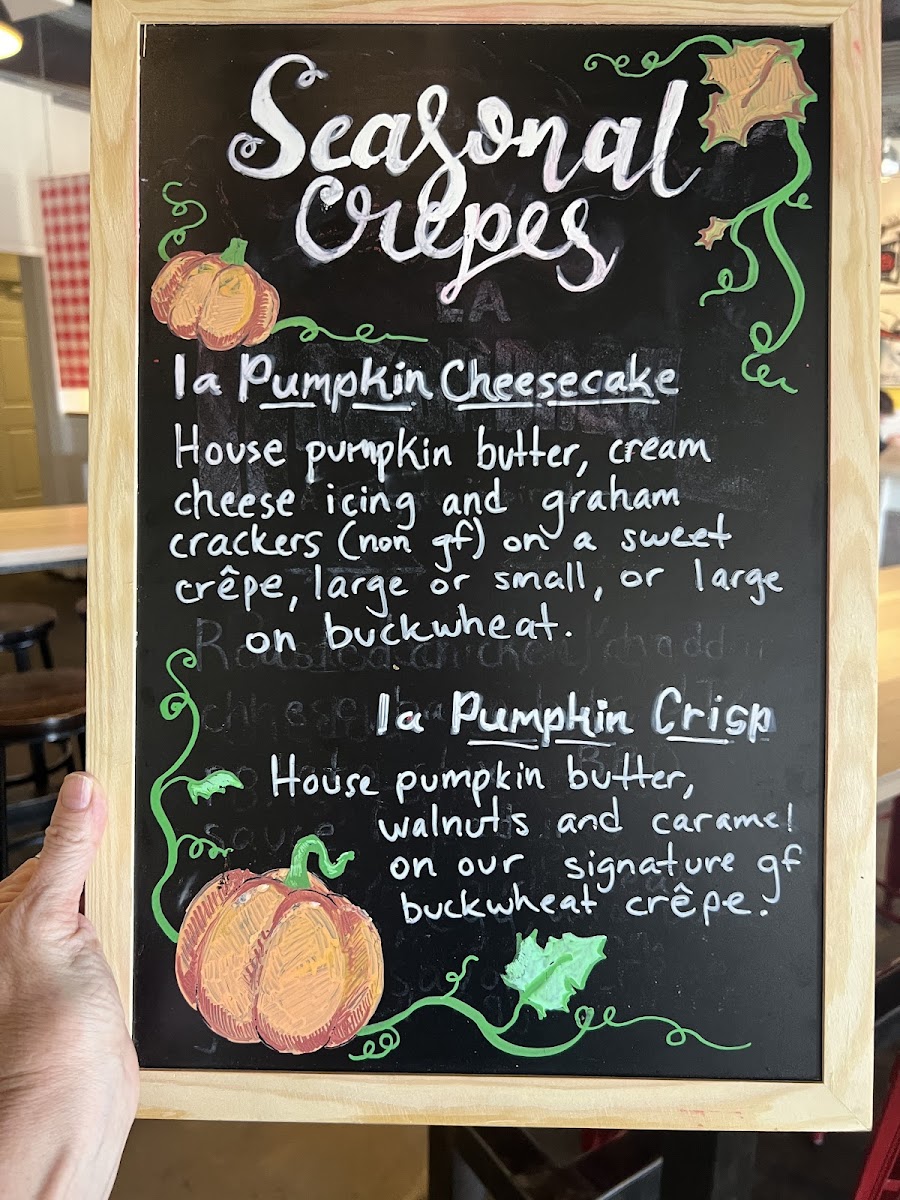 Seasonal
Crêpes
la Pumpkin Cheesecake
House pumpkin butter, cream
cheese icing and graham
crackers (non gf) on a sweet
crêpe, large or small, or large
on buckwheat.
la Pumpkin Crisp
House pumpkin butter,
walnuts and caramel
on our signature gf
buckwheat crêpe.